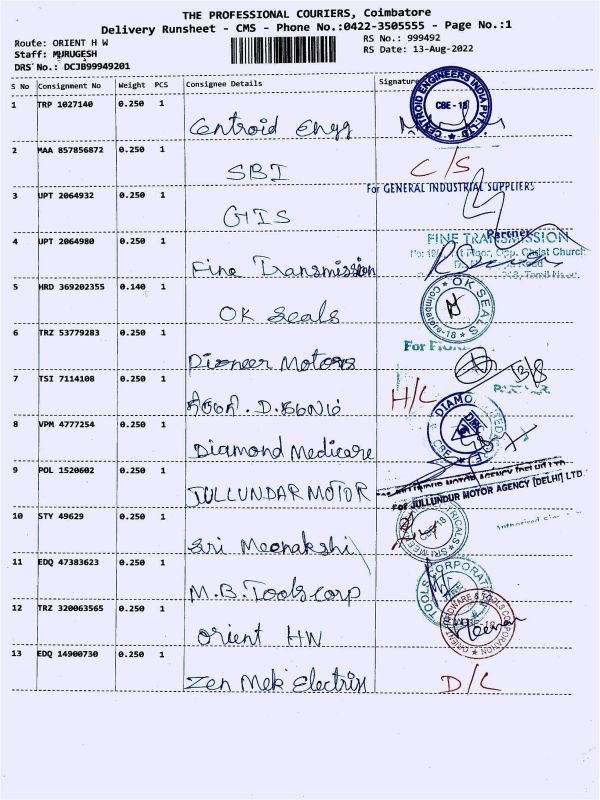 THE PROFESSIONAL COURIERS, Coimbatore
Delivery Runsheet - CMS - Phone No.:0422-3505555 - Page No.:1
Route: ORIENT H W
RS No.: 999492
Staff: MURUGESH
RS Date: 13-Aug-2022
DRS No.: DCJB99949201
S No Consignment No Weight PCS Consignee Details Signature
1 TRP 1027140 0.250 1
Centroid Engg
CENTROID ENGINEERS INDIA PVT.LTD
CBE - 18
2 MAA 857856872 0.250 1
SBI C/S
3 UPT 2064932 0.250 1
For GENERAL INDUSTRIAL SUPPLIERS
GIS
Partner
4 UPT 2064980 0.250 1
FINE TRANSMISSION
Floor, Opp. Christ Church
Fine Transmission
5 HRD 369202355 0.140 1
OK Seals
OK SEALS Coimbatore-18
6 TRZ 53779283 0.250 1
For
Pioneer Motors
13/8
7 TSI 7114108 0.250 1
H/C
8 VPM 4777254 0.250 1
Diamond Medicare
CBE
9 POL 1520602 0.250 1
JULLUNDAR MOTOR
For JULLUNDUR MOTOR AGENCY [DELHI] LTD.
10 STY 49629 0.250 1
Sri Meenakshi
11 EDQ 47383623 0.250 1
M.B. Tools corp
12 TRZ 320063565 0.250 1
Orient HW
ORIENT HARDWARE & TOOLS CORPORATION
13 EDQ 14900730 0.250 1
Zen Mek Electrix D/L